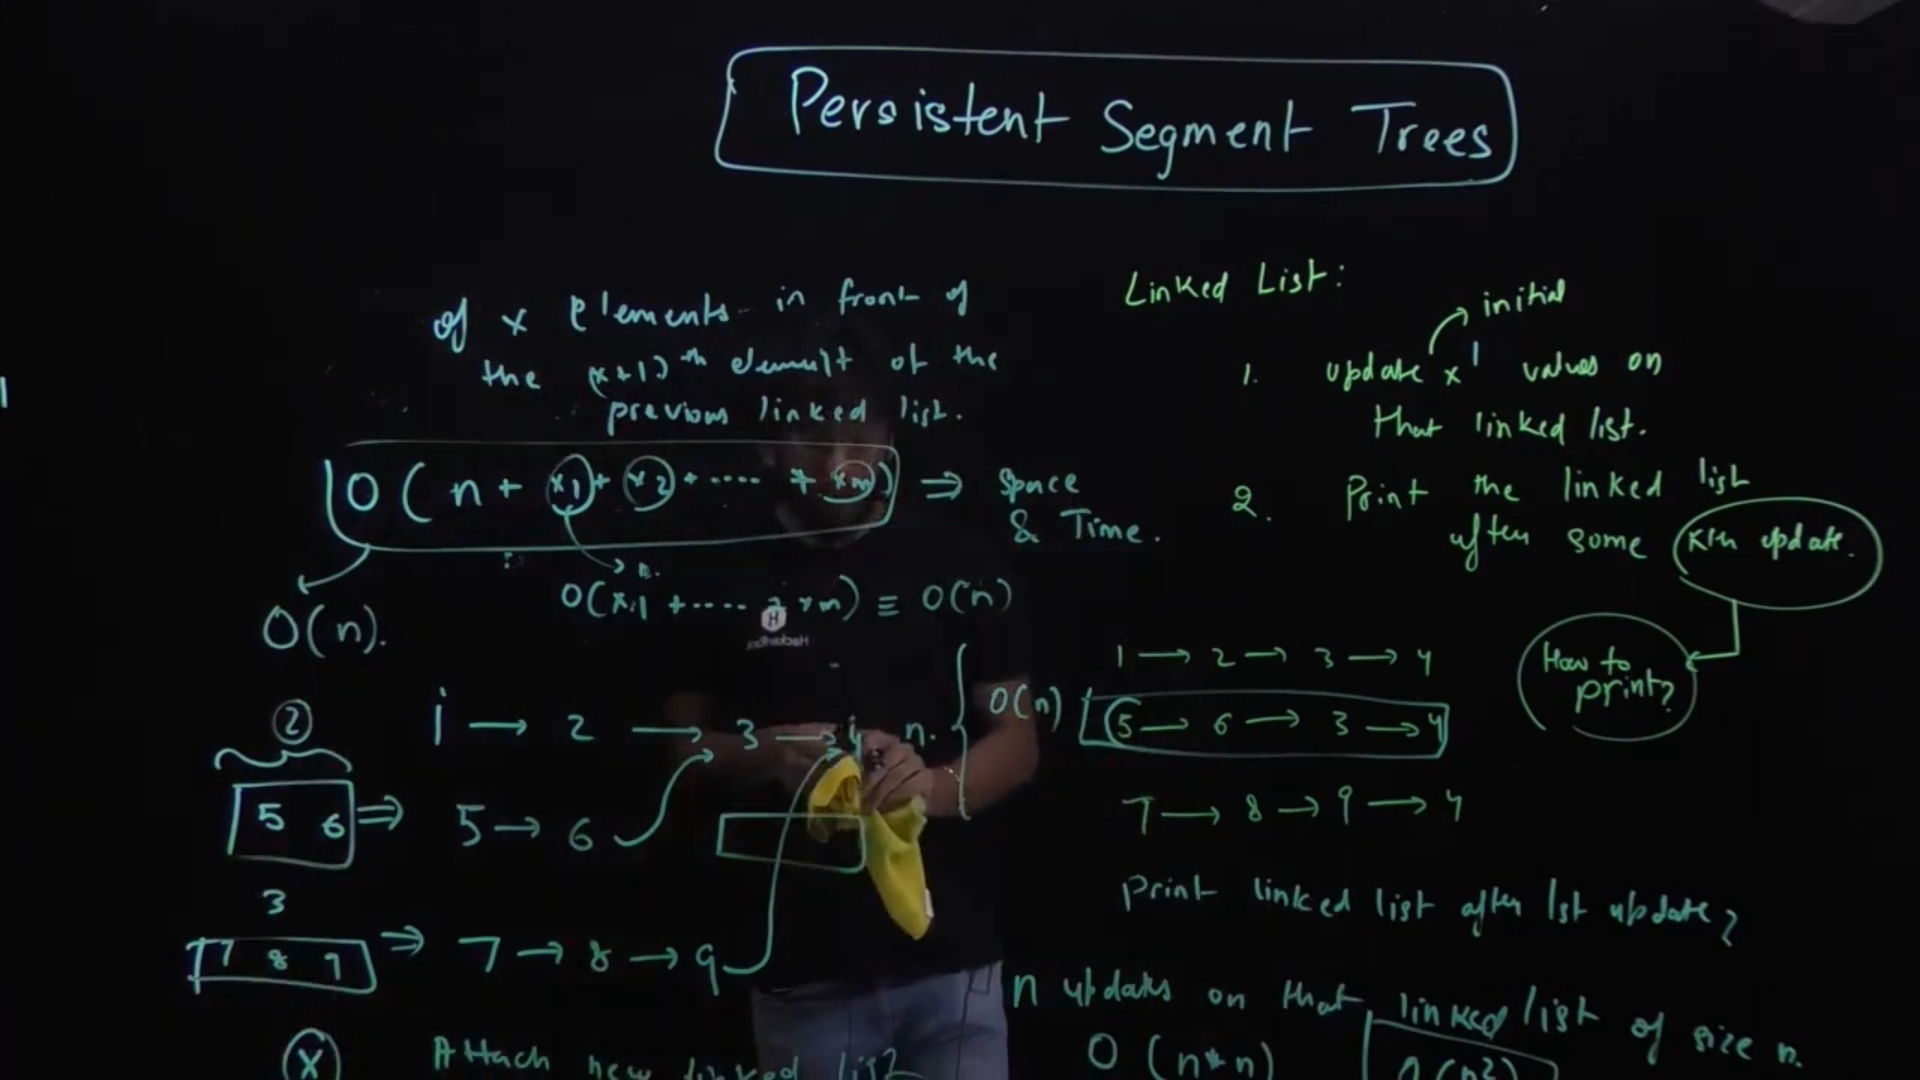 Persistent Segment Trees
of x elements in front of
the (x+1)th element of the
previous linked list.
O(n + x1 + x2 + ···· + xm) ⇒ Space
& Time.
O(n).
O(x1 + ···· + xm) ≡ O(n)
1 → 2 → 3 → 4 n. O(n)
2
5 6 ⇒ 5 → 6
3
7 8 9 ⇒ 7 → 8 → 9
X Attach new linked list
Linked List:
initial
1. update x values on
that linked list.
2. Print the linked list
after some Kth update.
How to
print?
1 → 2 → 3 → 4
5 → 6 → 3 → 4
7 → 8 → 9 → 4
Print linked list after 1st update?
n updates on that linked list of size n.
O(n*n) O(n²)